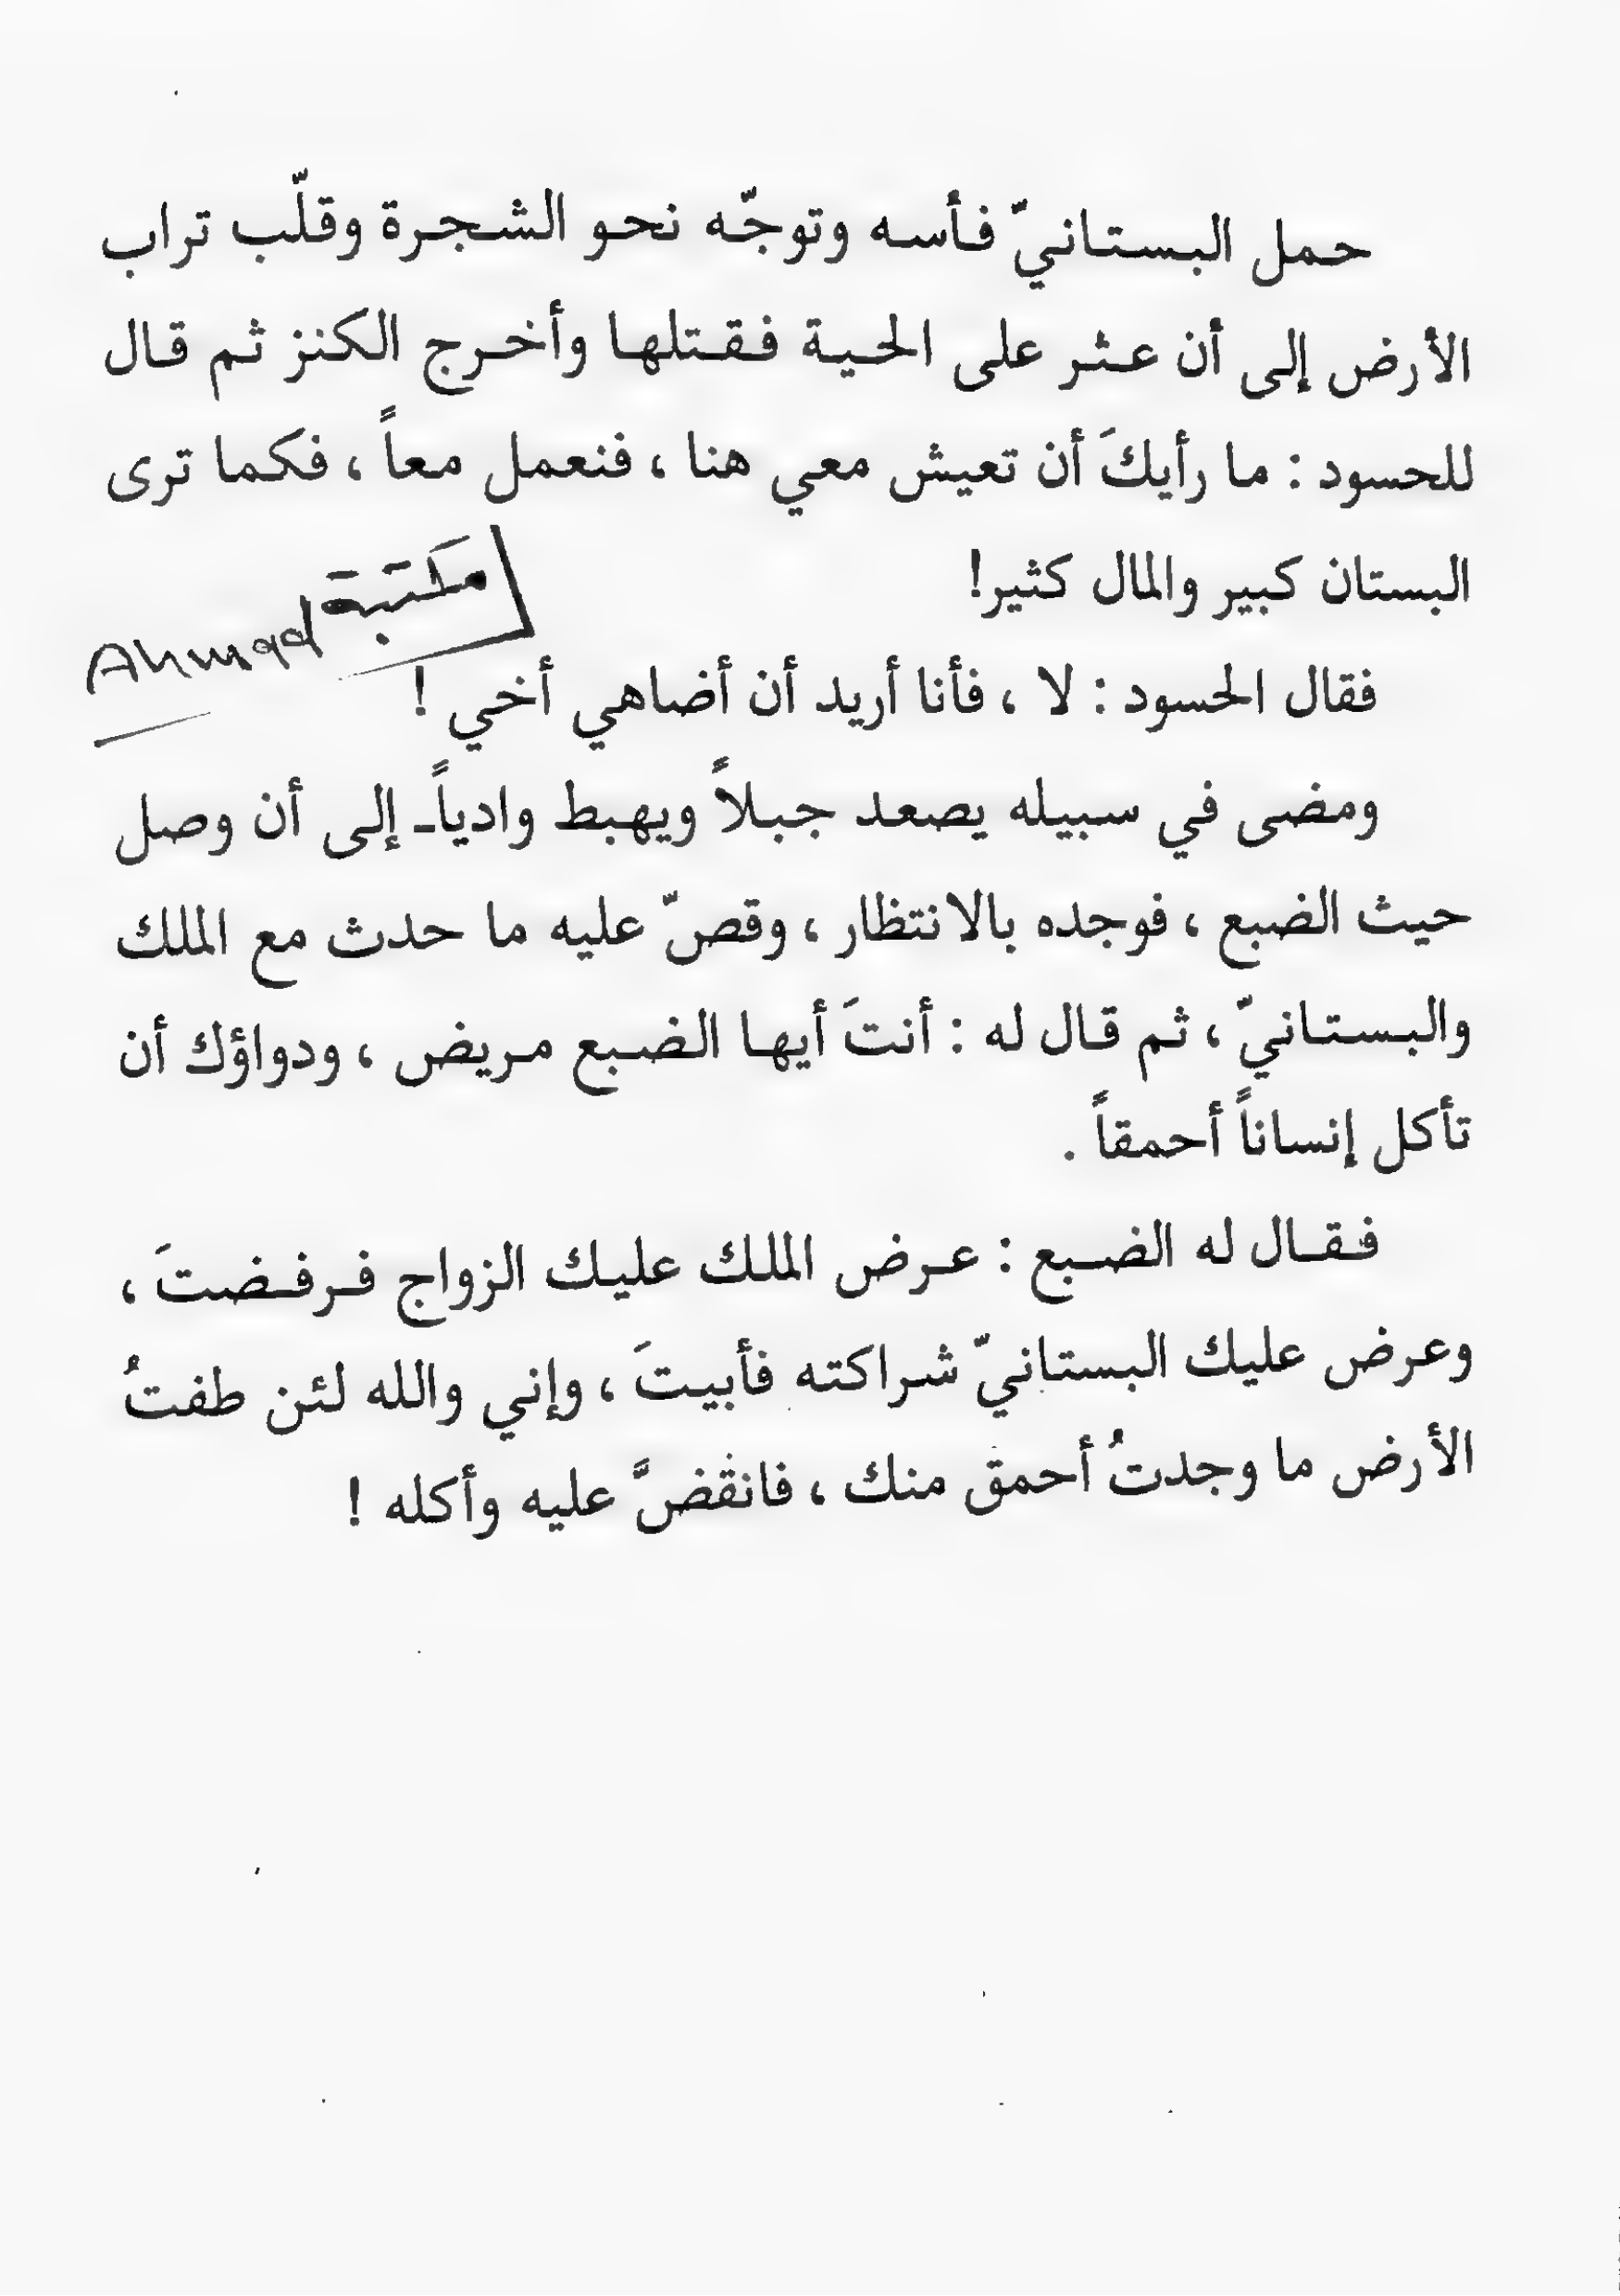 حمل البستانيّ فأسه وتوجّه نحو الشجرة وقلّب تراب
الأرض إلى أن عثر على الحية فقتلها وأخرج الكنز ثم قال
للحسود : ما رأيكَ أن تعيش معي هنا ، فنعمل معاً ، فكما ترى
البستان كبير والمال كثير!
مكتبة
Ahmad
فقال الحسود : لا ، فأنا أريد أن أضاهي أخي !
ومضى في سبيله يصعد جبلاً ويهبط وادياً إلى أن وصل
حيث الضبع ، فوجده بالانتظار ، وقصّ عليه ما حدث مع الملك
والبستانيّ ، ثم قال له : أنتَ أيها الضبع مريض ، ودواؤك أن
تأكل إنساناً أحمقاً .
فقال له الضبع : عرض الملك عليك الزواج فرفضتَ ،
وعرض عليك البستانيّ شراكته فأبيتَ ، وإني والله لئن طفتُ
الأرض ما وجدتُ أحمق منك ، فانقضَّ عليه وأكله !